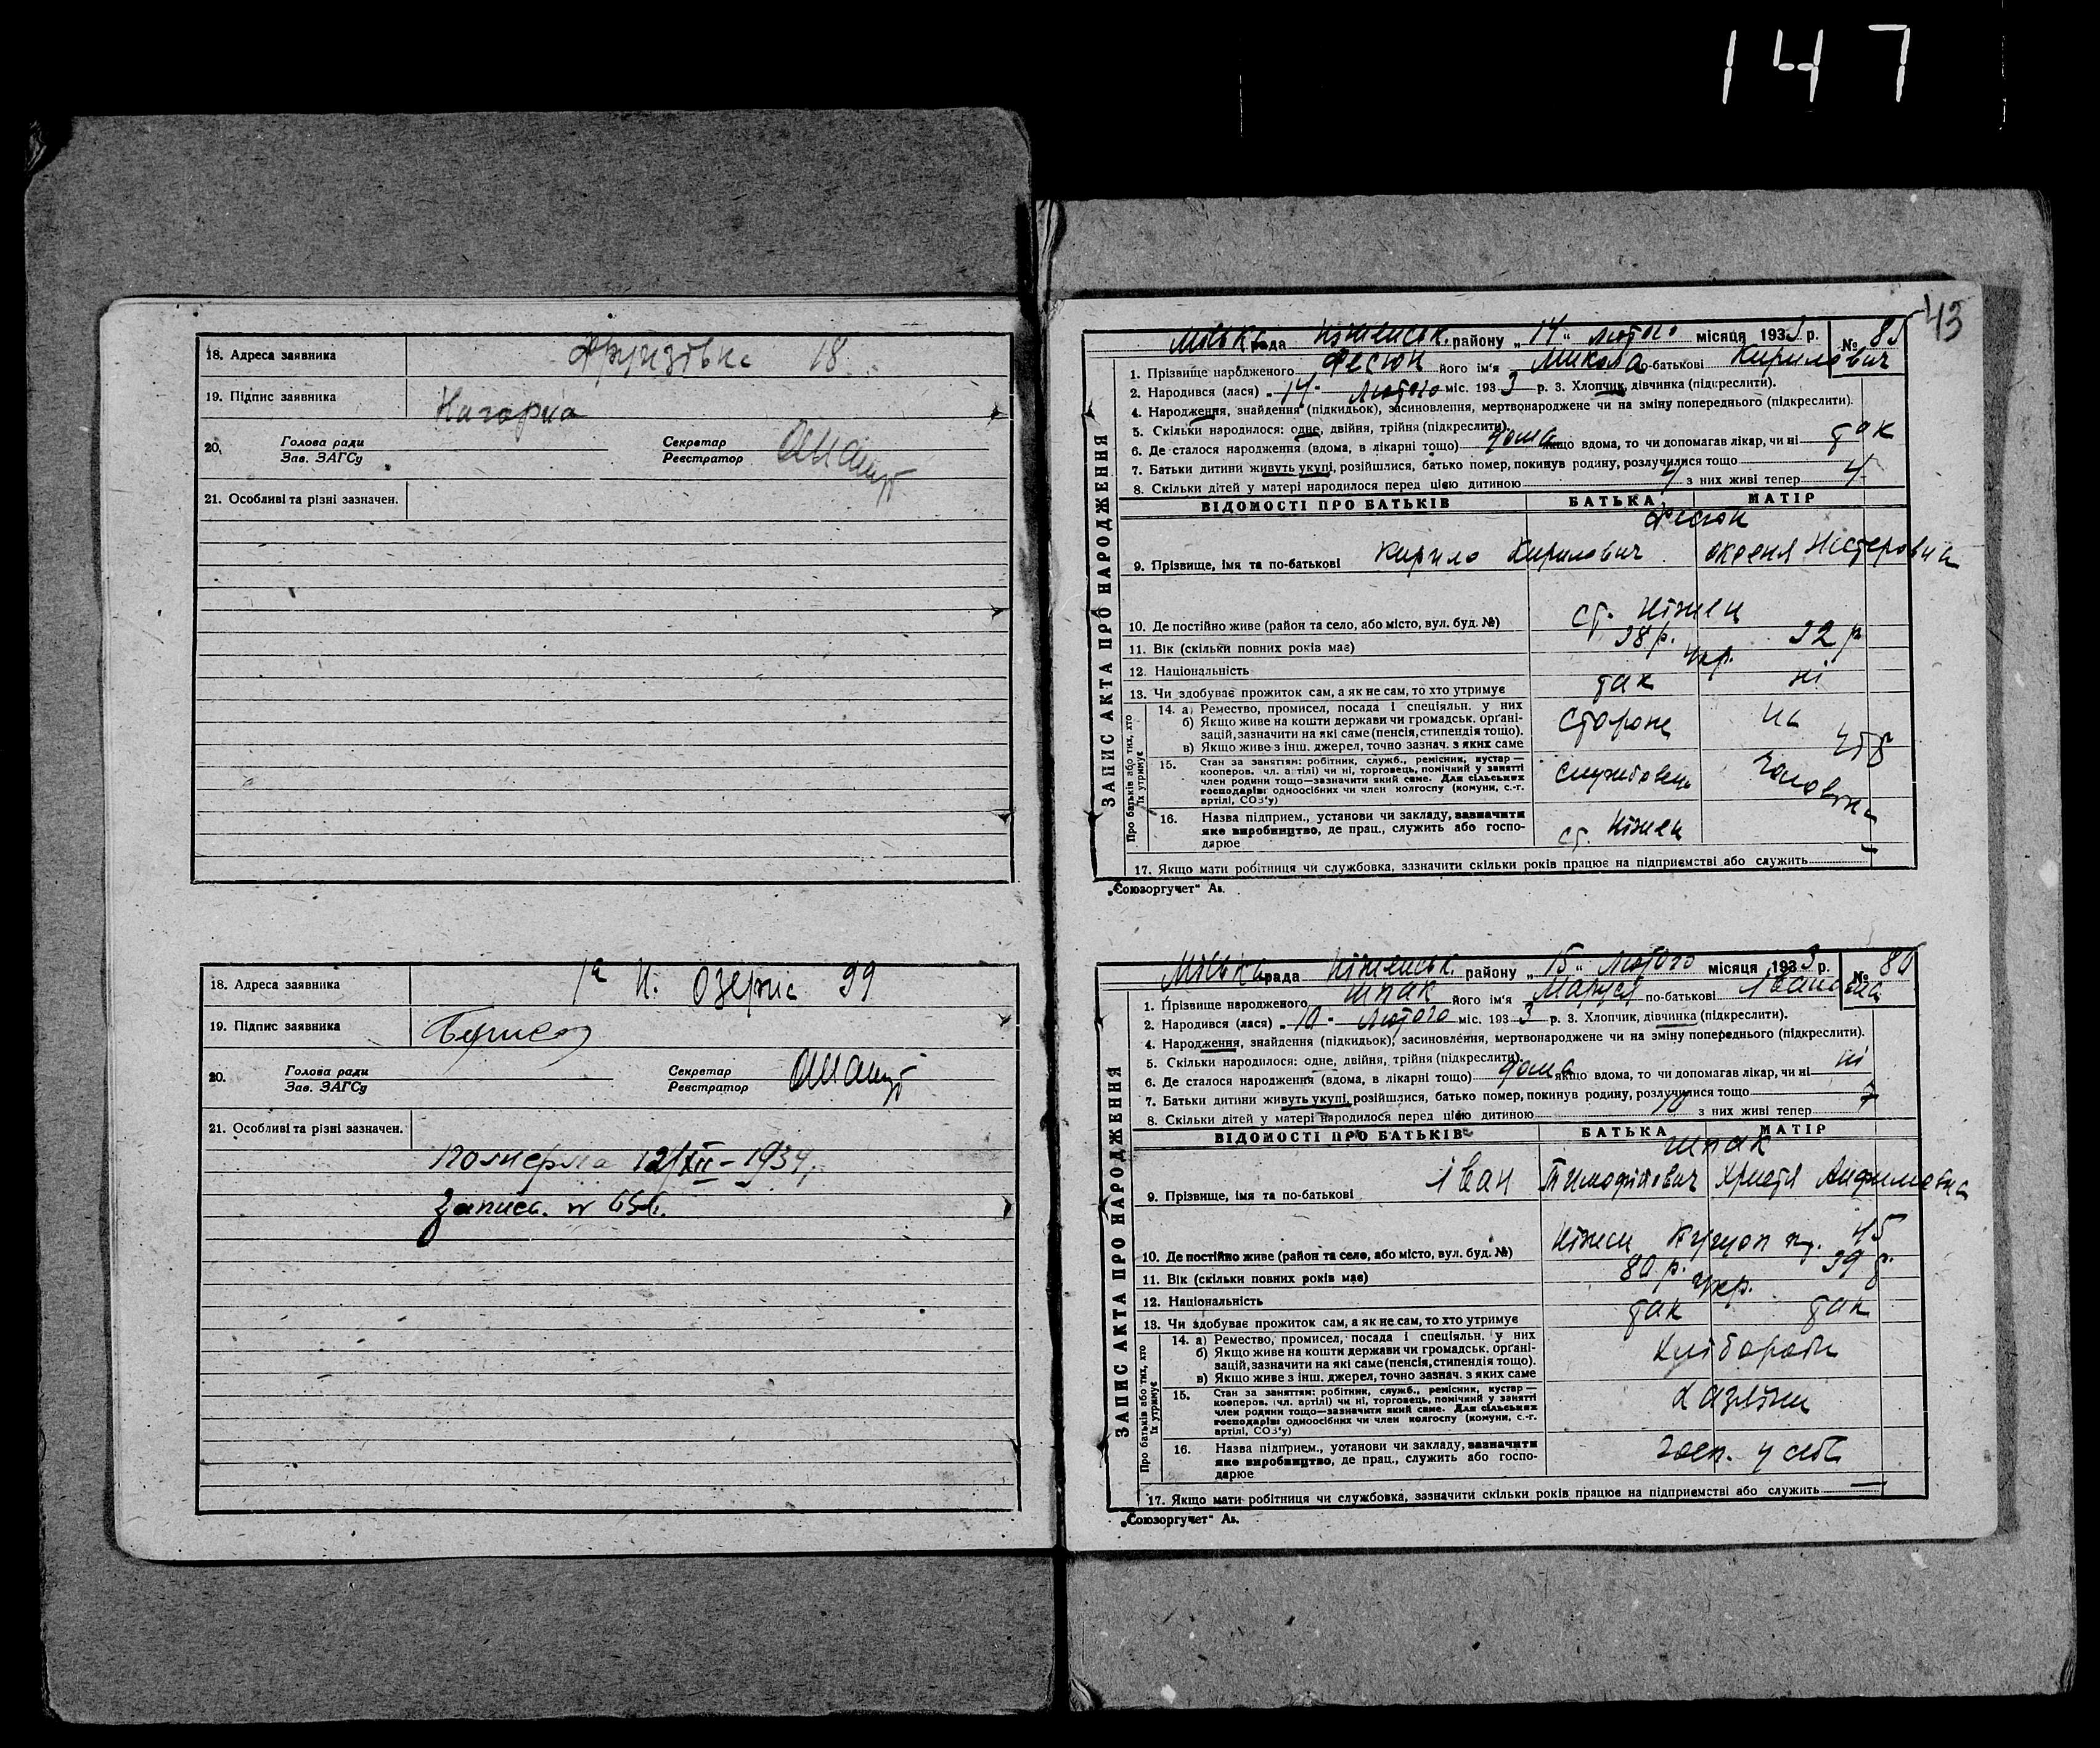 147
18. Адреса заявника 18
19. Підпис заявника Нагорна
20. Голова ради Секретар
Зав. ЗАГСу Реєстратор
21. Особливі та різні зазначен.
18. Адреса заявника Озерна 99
19. Підпис заявника
20. Голова ради Секретар
Зав. ЗАГСу Реєстратор
21. Особливі та різні зазначен.
померла 12/XII-1934
Запись №
43
ЗАПИС АКТА ПРО НАРОДЖЕННЯ
Міська рада Ніженськ. району „14“ лютого місяця 1933 р. № 85
1. Прізвище народженого Фесюн його ім'я Микола по-батькові Кирилович
2. Народився (лася) „14“ лютого міс. 1933 р. 3. Хлопчик, дівчинка (підкреслити).
4. Народження, знайдення (підкидьок), засиновлення, мертвонароджене чи на зміну попереднього (підкреслити).
5. Скільки народилося: одне, двійня, трійня (підкреслити).
6. Де сталося народження (вдома, в лікарні тощо) дома якщо вдома, то чи допомагав лікар, чи ні так
7. Батьки дитини живуть укупі, розійшлися, батько помер, покинув родину, розлучилися тощо
8. Скільки дітей у матері народилося перед цією дитиною 4 з них живі тепер 4
ВІДОМОСТІ ПРО БАТЬКІВ БАТЬКА МАТІР
Фесюн
9. Прізвище, імя та по-батькові Кирило Кирилович Нестеровна
10. Де постійно живе (район та село, або місто, вул. буд. №) ст. Ніжен
11. Вік (скільки повних років має) 38 р. 32 р
12. Національність укр.
13. Чи здобуває прожиток сам, а як не сам, то хто утримує так ні
Про батьків або тих, хто їх утримує
14. а) Ремество, промисел, посада і спеціяльн. у них
б) Якщо живе на кошти держави чи громадськ. органі-
зацій, зазначити на які саме (пенсія, стипендія тощо).
в) Якщо живе з інш. джерел, точно зазнач. з яких саме
15. Стан за заняттям: робітник, служб., ремісник, кустар—
кооперов. чл. артілі) чи ні, торговець, помічний у занятті
член родини тощо—зазначити який саме. Для сільських
господарів: одноосібних чи член колгоспу (комуни, с.-г.
артілі, СОЗ'у) службовець
16. Назва підприєм., установи чи закладу, зазначити
яке виробництво, де прац., служить або госпо-
дарює ст. Ніжен
17. Якщо мати робітниця чи службовка, зазначити скільки років працює на підприємстві або служить
„Союзоргучет“ Ав.
ЗАПИС АКТА ПРО НАРОДЖЕННЯ
Міська рада Ніженськ. району „15“ лютого місяця 1933 р. № 86
1. Прізвище народженого Шпак його ім'я Маруся по-батькові Іванівна
2. Народився (лася) „10“ лютого міс. 1933 р. 3. Хлопчик, дівчинка (підкреслити).
4. Народження, знайдення (підкидьок), засиновлення, мертвонароджене чи на зміну попереднього (підкреслити).
5. Скільки народилося: одне, двійня, трійня (підкреслити).
6. Де сталося народження (вдома, в лікарні тощо) дома якщо вдома, то чи допомагав лікар, чи ні ні
7. Батьки дитини живуть укупі, розійшлися, батько помер, покинув родину, розлучилися тощо
8. Скільки дітей у матері народилося перед цією дитиною 10 з них живі тепер 7
ВІДОМОСТІ ПРО БАТЬКІВ БАТЬКА МАТІР
Шпак
9. Прізвище, імя та по-батькові Іван Тимофійович Христя
10. Де постійно живе (район та село, або місто, вул. буд. №) Ніжен 45
11. Вік (скільки повних років має) 39 р.
12. Національність укр.
13. Чи здобуває прожиток сам, а як не сам, то хто утримує так так
Про батьків або тих, хто їх утримує
14. а) Ремество, промисел, посада і спеціяльн. у них
б) Якщо живе на кошти держави чи громадськ. органі-
зацій, зазначити на які саме (пенсія, стипендія тощо).
в) Якщо живе з інш. джерел, точно зазнач. з яких саме
хлібороби
15. Стан за заняттям: робітник, служб., ремісник, кустар—
кооперов. (чл. артілі) чи ні, торговець, помічний у занятті
член родини тощо—зазначити який саме. Для сільських
господарів: одноосібних чи член колгоспу (комуни, с.-г.
артілі, СОЗ'у)
16. Назва підприєм., установи чи закладу, зазначити
яке виробництво, де прац., служить або госпо-
дарює госп. у себе
17. Якщо мати робітниця чи службовка, зазначити скільки років працює на підприємстві або служить —
„Союзоргучет“ Ав.